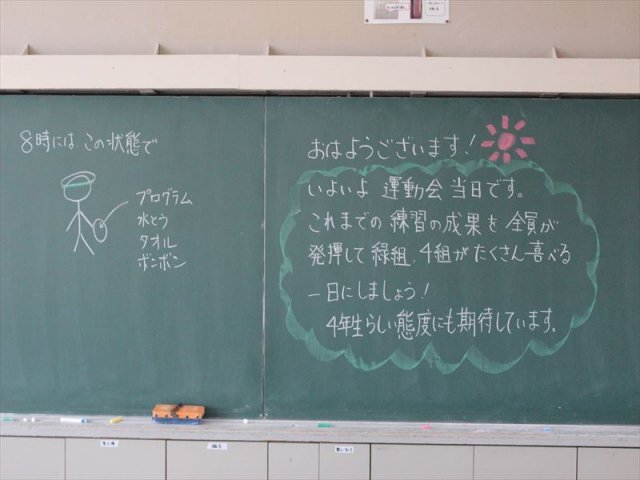 8時には この状態で
プログラム
水とう
タオル
ポンポン
おはようございます!
いよいよ 運動会 当日です。
これまでの 練習の成果を 全員が
発揮して 緑組、4組が たくさん喜べる
一日にしましょう!
4年生らしい態度にも期待しています。